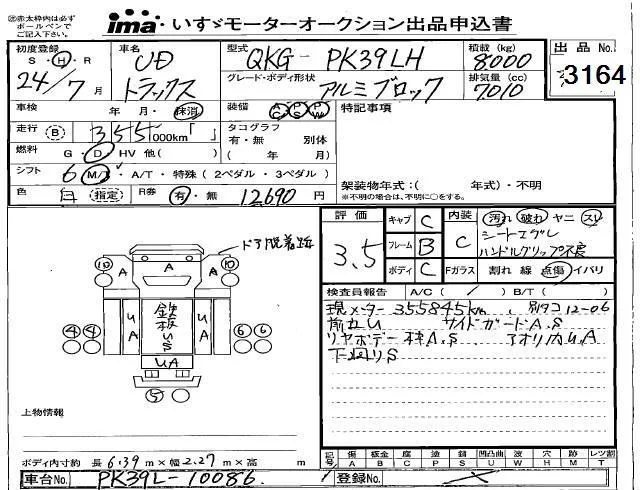 ㊟赤太枠内は必ず
ボールペンで
ご記入下さい。
ima いすゞモーターオークション出品申込書
初度登録
S・H・R
24/7月
車名
UD
トラックス
型式
QKG-PK39LH
グレード・ボディ形状
アルミブロック
積載 (kg)
8000
排気量 (cc)
7010
出品 No.
3164
車検 年・月・抹消
装備 AC PS PW
特記事項
走行 B 355,000km「 」
タコグラフ
有・無 別体
( 年 月)
燃料 G・D HV 他( )
シフト 6 M/T・A/T・特殊(2ペダル・3ペダル)
架装物年式:( 年式)・不明
※不明の場合は、不明に○をする。
色 白 指定
R券 有・無 12690円
評価
3.5
キャブ C
フレーム B
ボディ C
内装 C
汚れ 破れ ヤニ スレ
シートコゲレ
ハンドルグリップ不良
Fガラス 割れ 線 点傷 イバリ
ドア脱着跡
10 A A A 10
4 4 UA 鉄板US UA 6 6
UA
5
検査員報告 A/C( / ) B/T( )
現メーター355845km、別タコ12-06
前立U サイドガードA.S
リヤボデー枠A.S アオリ内U.A
下廻りS
上物情報
ボディ内寸約 長6.39m×幅2.27m×高 m
記号 傷 A 板金 B 腐 C 塗 P 錆 S 凸凹曲 U 波 W 穴 H 跡 M レツ割 T
車台No. PK39L-10086
登録No.